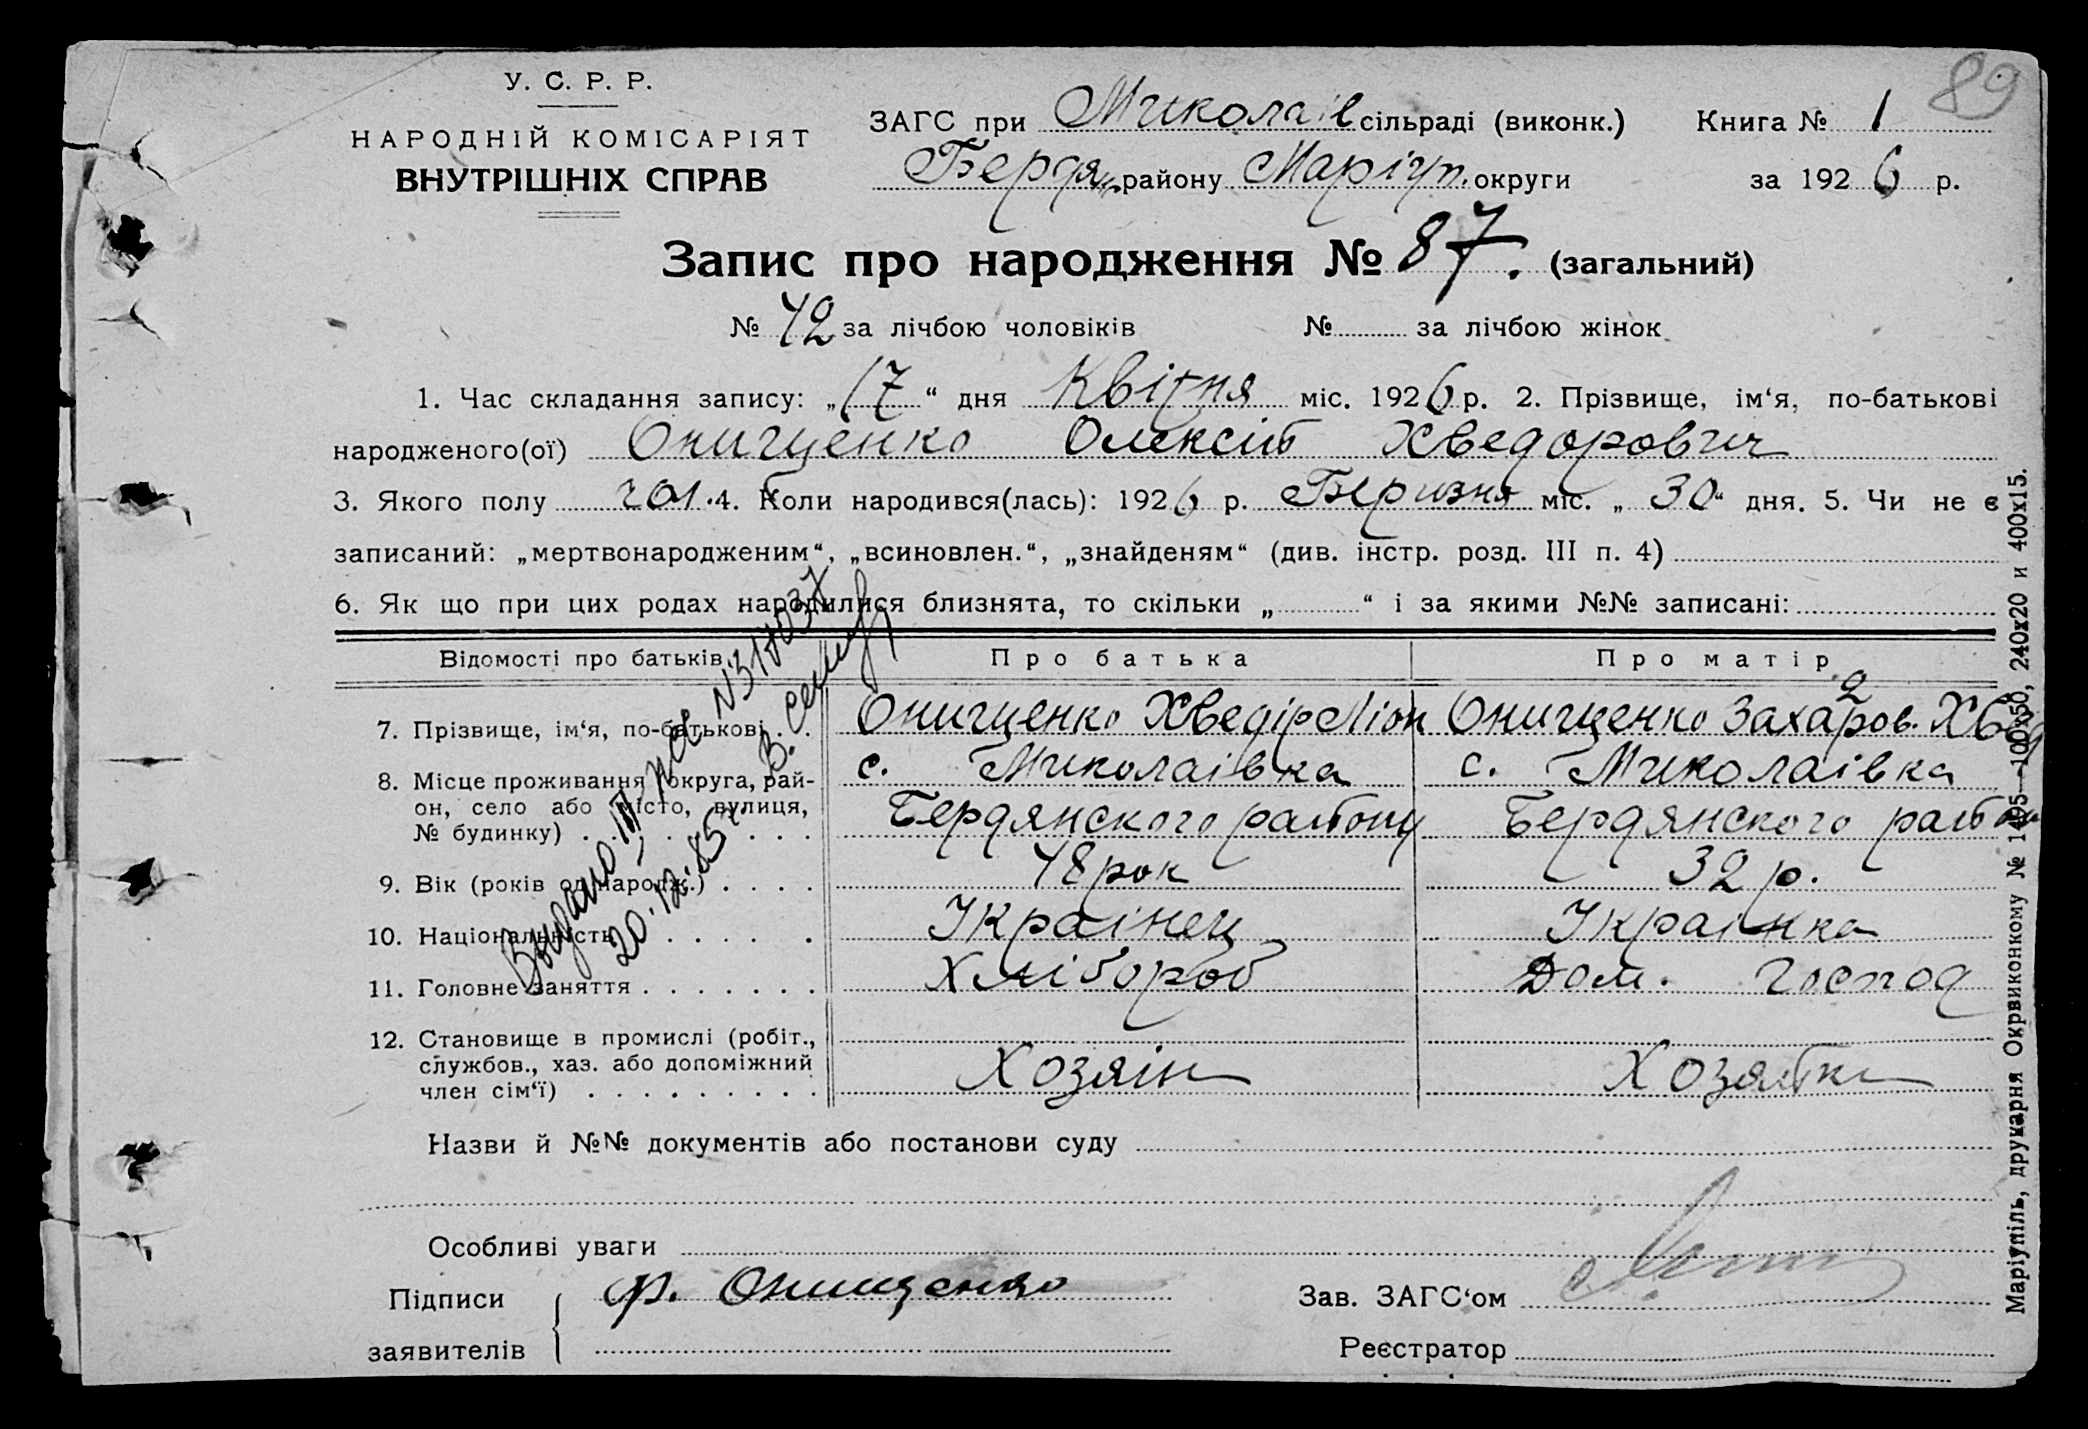 89
У. С. Р. Р.
НАРОДНІЙ КОМІСАРІЯТ
ВНУТРІШНІХ СПРАВ
ЗАГС при Миколаїв сільраді (виконк.) Книга № 1
Бердян. району Маріуп. округи за 1926 р.
Запис про народження № 87. (загальний)
№ 42 за лічбою чоловіків № за лічбою жінок
1. Час складання запису: „17“ дня Квітня міс. 1926 р. 2. Прізвище, ім‘я, по-батькові
народженого(ої) Онищенко Олексій Хведорович
3. Якого полу чол. 4. Коли народився(лась): 1926 р. Березня міс. „30“ дня. 5. Чи не є
записаний: „мертвонародженим“, „всиновлен.“, „знайденям“ (див. інстр. розд. III п. 4)
6. Як що при цих родах народилися близнята, то скільки „ “ і за якими №№ записані:
Відомості про батьків Про батька Про матір
7. Прізвище, ім‘я, по-батькові . . Онищенко Хведір Ліон Онищенко Захаров. Хвед
8. Місце проживання (округа, рай- с. Миколаівка с. Миколаівка
он, село або місто, вулиця,
№ будинку) Бердянского району Бердянского район
9. Вік (років од народж.) . . . . 48 рок 32 р.
10. Національність Украінец Украінка
11. Головне заняття Хлібороб Дом. господ
12. Становище в промислі (робіт.,
службов., хаз. або допоміжний
член сім‘ї) Хозяін Хозяйка
Видано
20.12.85
Назви й №№ документів або постанови суду
Особливі уваги
Підписи ф. Онищенко Зав. ЗАГС‘ом
заявителів Реєстратор
Маріупіль, друкарня Окрвиконкому № 1495—100х50, 240х20 и 400х15.